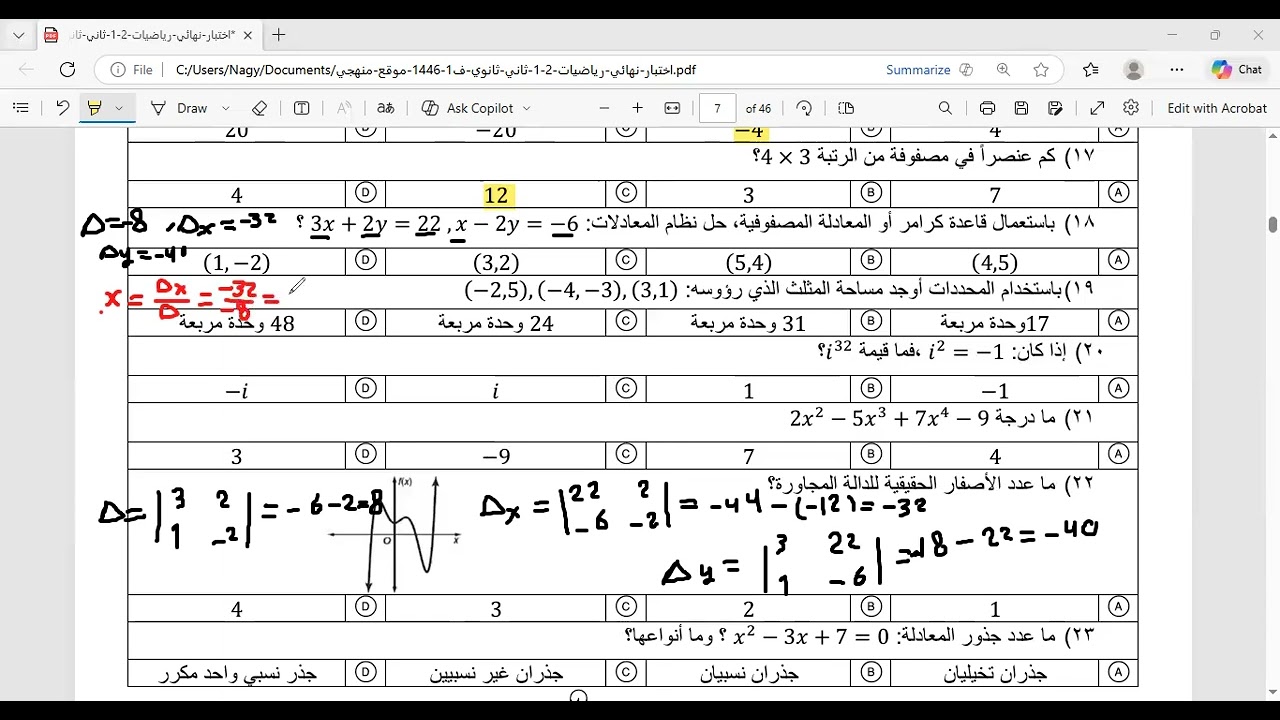 اختبار-نهائي-رياضيات-2-1-ثاني-ثان*
File C:/Users/Nagy/Documents/اختبار-نهائي-رياضيات-2-1-ثاني-ثانوي-ف1-1446-موقع-منهجي.pdf Summarize Chat
Draw Ask Copilot 7 of 46 Edit with Acrobat
4 B −4 C −20 D 20
١٧) كم عنصراً في مصفوفة من الرتبة 3 × 4؟
A 7 B 3 C 12 D 4
١٨) باستعمال قاعدة كرامر أو المعادلة المصفوفية، حل نظام المعادلات: 3x + 2y = 22 , x − 2y = −6 ؟
Δ=-8 , Δx=-32
Δy=-40
A (4,5) B (5,4) C (3,2) D (1,−2)
١٩) باستخدام المحددات أوجد مساحة المثلث الذي رؤوسه: (−2,5), (−4,−3), (3,1)
x = Δx/Δ = -32/-8 =
A 17وحدة مربعة B 31 وحدة مربعة C 24 وحدة مربعة D 48 وحدة مربعة
٢٠) إذا كان: i² = −1 ،فما قيمة i³²؟
A −1 B 1 C i D −i
٢١) ما درجة 2x² − 5x³ + 7x⁴ − 9
A 4 B 7 C −9 D 3
٢٢) ما عدد الأصفار الحقيقية للدالة المجاورة؟
f(x) O x
Δ= |3 2 1 -2| = -6-2=8
Δx = |22 2 -6 -2| = -44-(-12)=-32
Δy = |3 22 1 -6| =-18-22=-40
A 1 B 2 C 3 D 4
٢٣) ما عدد جذور المعادلة: x² − 3x + 7 = 0 ؟ وما أنواعها؟
A جذران تخيليان B جذران نسبيان C جذران غير نسبيين D جذر نسبي واحد مكرر